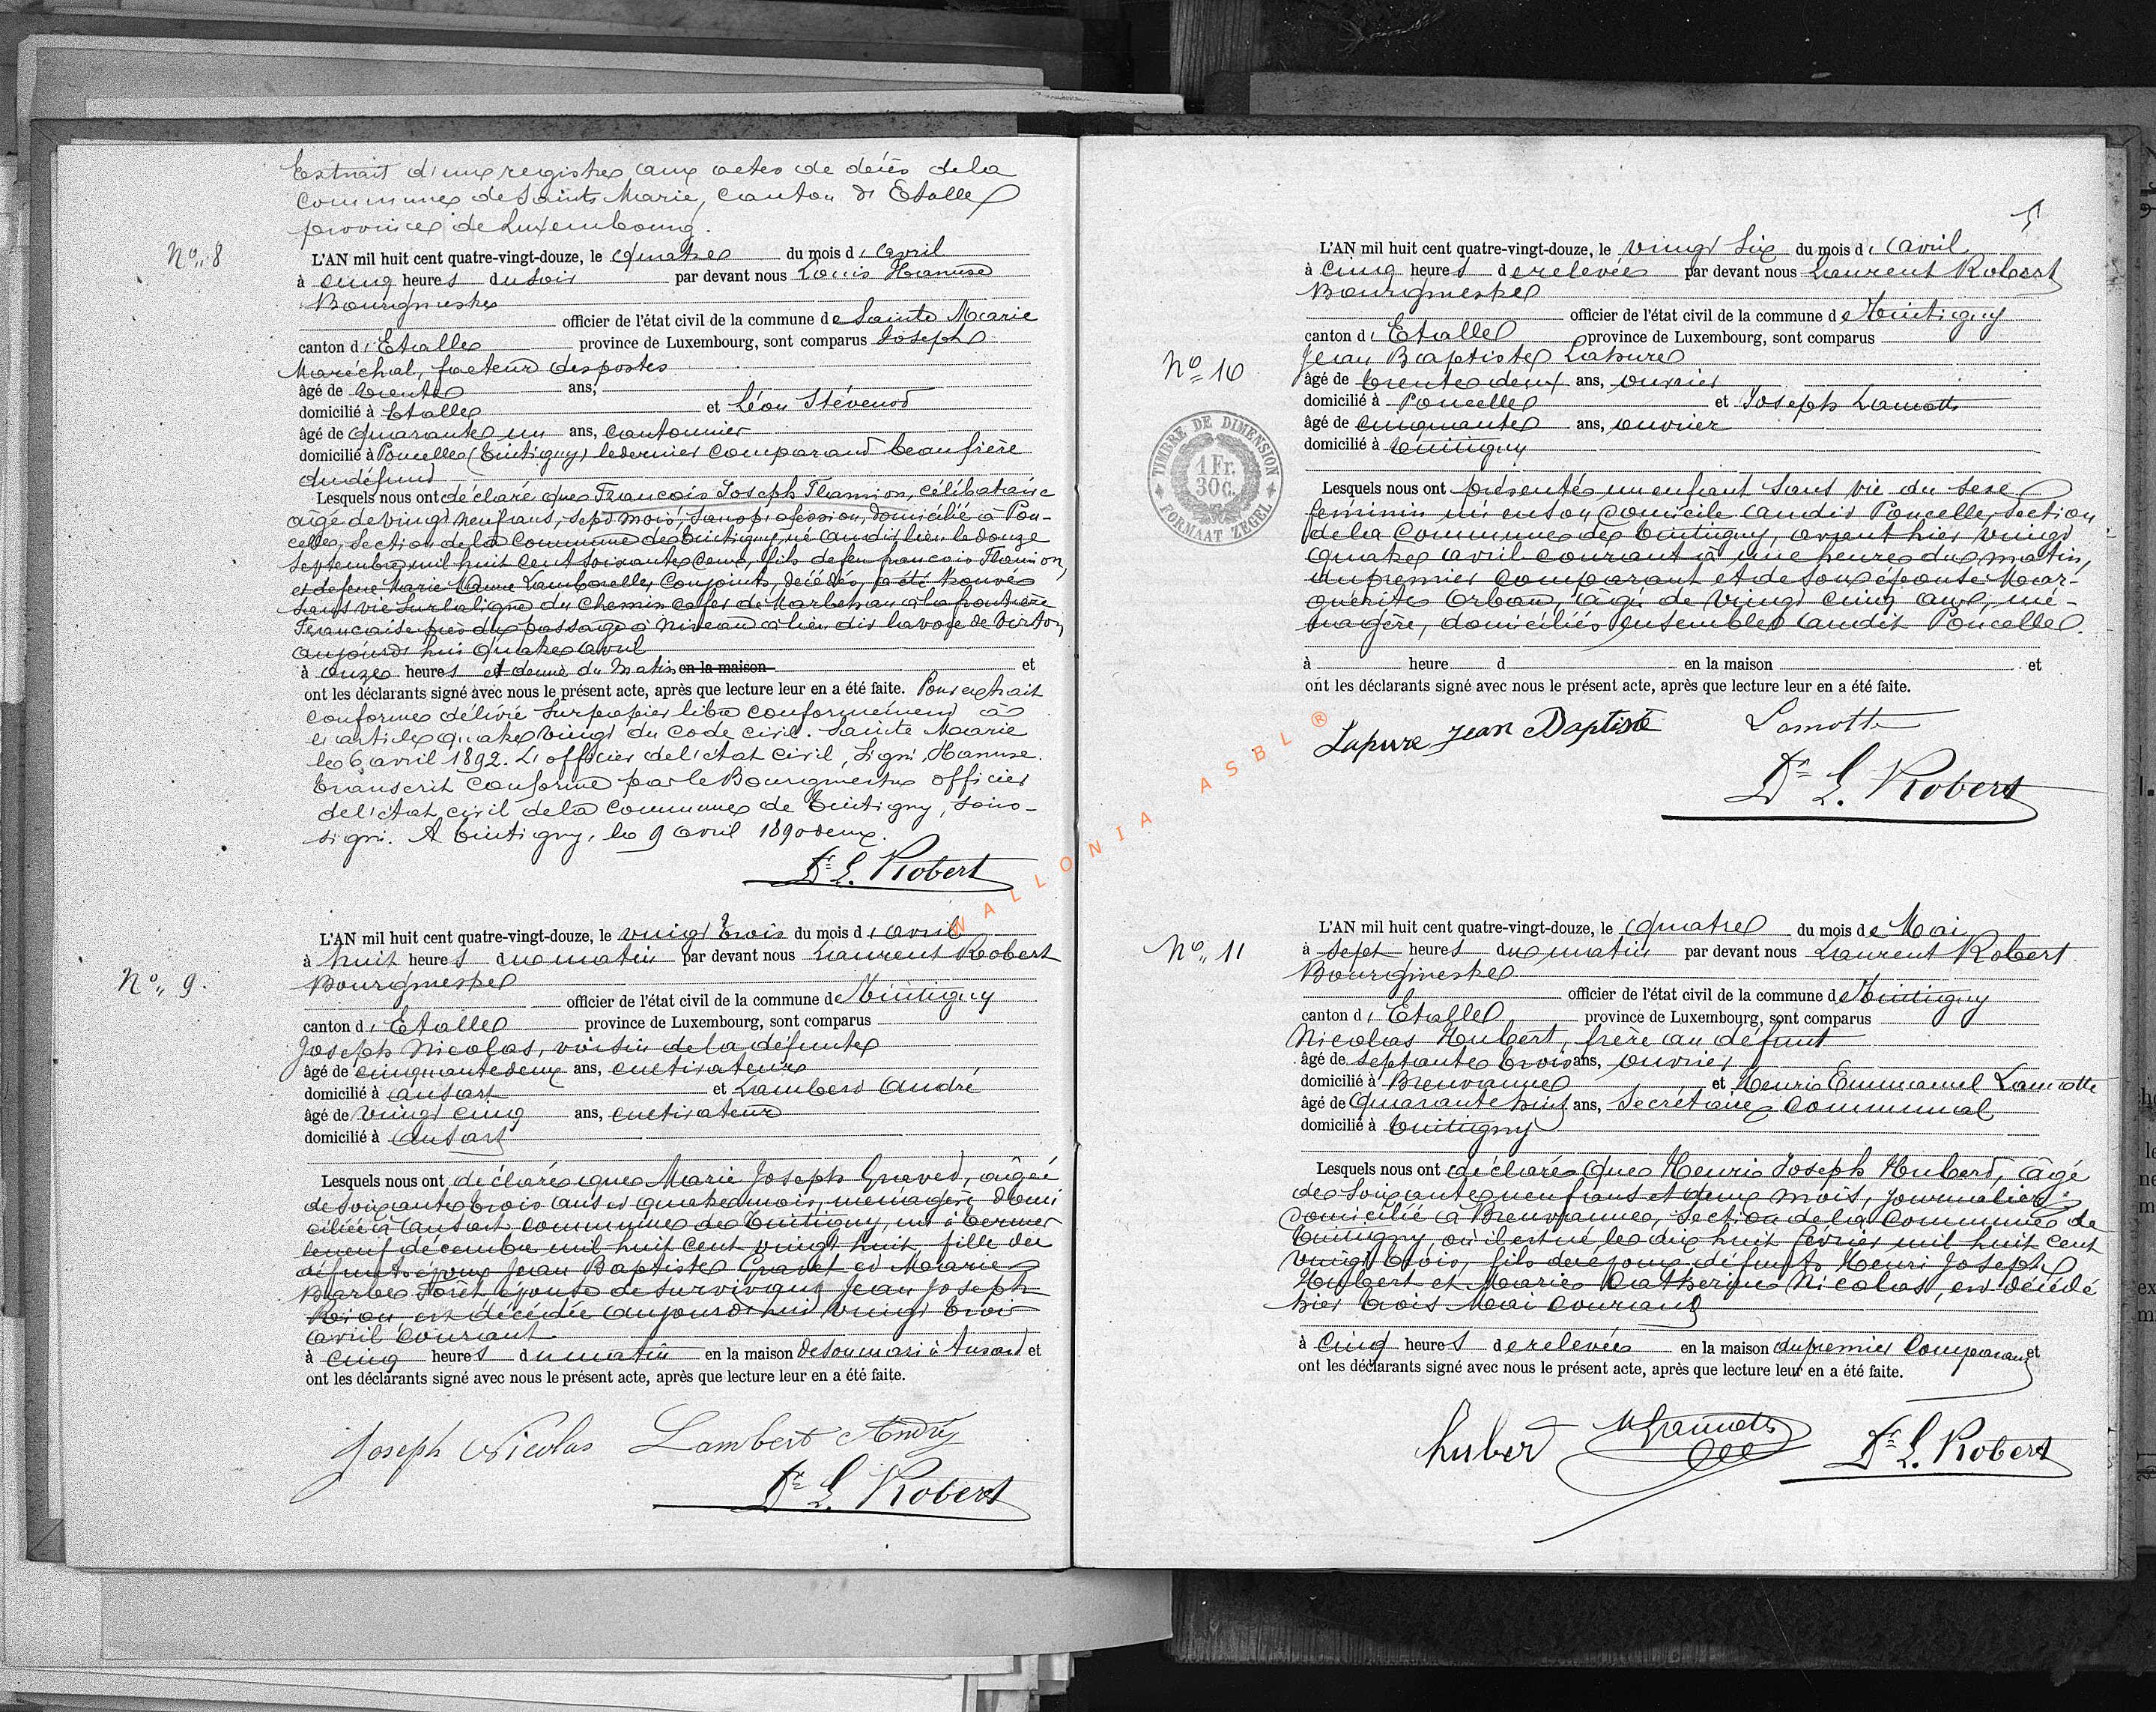 Extrait d'un registre aux actes de décès de la
Commune de Sainte Marie, canton d'Etalle
province de Luxembourg.
No. 8
L'AN mil huit cent quatre-vingt-douze, le quatre du mois d'avril
à cinq heures du soir par devant nous Louis Hanuse
Bourgmestre
officier de l'état civil de la commune de Sainte Marie
canton d'Etalle province de Luxembourg, sont comparus Joseph
Maréchal, facteur des postes
âgé de trente ans,
domicilié à Etalle et Léon Stévenot
âgé de quarante un ans, cantonnier
domicilié à Poncelle (Tintigny) le dernier comparant beau frère
du défunt
Lesquels nous ont déclaré que François Joseph Flamion, célibataire
âgé de vingt neuf ans, sept mois, sans profession, domicilié à Pon-
celle, Section de la Commune de Tintigny, né audit lieu le douze
Septembre mil huit cent soixante deux, fils de feu françois Flamion,
et de feue Marie Jeanne Lamborelle, Conjoints, décédés, a été trouvé
sans vie sur la ligne du chemin de fer de Marbehan à la frontière
Française près du passage à niveau à lieu dit la voye de Virton,
aujourd'hui quatre avril
à onze heures et demie du matin en la maison et
ont les déclarants signé avec nous le présent acte, après que lecture leur en a été faite. Pour extrait
conforme délivré sur papier libre conformément à
l'article quatre vingt du code civil. Sainte Marie
le 6 avril 1892. L'officier de l'état civil, Signé, Hanuse.
Transcrit conforme par le Bourgmestre officier
de l'état civil de la commune de Tintigny, sous-
signé. A Tintigny, le 9 avril 1890deux.
Dr L. Robert
No. 9.
L'AN mil huit cent quatre-vingt-douze, le vingt trois du mois d'avril
à huit heures du matin par devant nous Laurent Robert
Bourgmestre
officier de l'état civil de la commune de Tintigny
canton d'Etalle province de Luxembourg, sont comparus
Joseph Nicolas, voisin de la défunte
âgé de cinquante deux ans, cultivateur
domicilié à Ansart et Lambert André
âgé de vingt cinq ans, cultivateur
domicilié à Ansart
Lesquels nous ont déclaré que Marie Joseph Gravet, âgée
de soixante trois ans et quatre mois, ménagère domi
ciliée à Ansart commune de Tintigny, née à Termes
le neuf décembre mil huit cent vingt huit, fille des
défunts époux Jean Baptiste Gravet et Marie
Barbe Forêt épouse de survivant Jean Joseph
est décédée aujourd'hui vingt trois
avril courant
à cinq heures du matin en la maison de son mari à Ansart et
ont les déclarants signé avec nous le présent acte, après que lecture leur en a été faite.
Joseph Nicolas Lambert André
Dr L. Robert
5
No 10
L'AN mil huit cent quatre-vingt-douze, le vingt Six du mois d'avril
à cinq heures de relevée par devant nous Laurent Robert
Bourgmestre
officier de l'état civil de la commune de Tintigny
canton d'Etalle province de Luxembourg, sont comparus
Jean Baptiste Lapure
âgé de trente deux ans, ouvrier
domicilié à Poncelle et Joseph Lamotte
âgé de cinquante ans, ouvrier
domicilié à Tintigny
TIMBRE DE DIMENSION
1 Fr.
30C.
FORMAAT ZEGEL
Lesquels nous ont présenté un enfant sans vie du sexe
féminin né en son domicile audit Poncelle, Section
de la Commune de Tintigny, avant hier vingt
quatre avril courant à une heure du matin,
du premier comparant et de son épouse Mar-
guérite Orban, âgé de vingt cinq ans, mé-
nagère, domiciliés ensemble audit Poncelle.
à heure d en la maison et
ont les déclarants signé avec nous le présent acte, après que lecture leur en a été faite.
Lapure Jean Baptiste Lamotte
Dr L. Robert
No. 11
L'AN mil huit cent quatre-vingt-douze, le quatre du mois de Mai
à sept heures du matin par devant nous Laurent Robert
Bourgmestre
officier de l'état civil de la commune de Tintigny
canton d'Etalle province de Luxembourg, sont comparus
Nicolas Hubert, frère au défunt
âgé de septante trois ans, ouvrier
domicilié à Breuvanne et Henri Emmanuel Lamotte
âgé de quarante huit ans, Secrétaire Communal
domicilié à Tintigny
Lesquels nous ont déclaré que Henri Joseph Hubert, âgé
de soixante neuf ans et deux mois, journalier
domicilié à Breuvanne, Section de la Commune de
Tintigny, où il est né le dix huit février mil huit cent
vingt trois, fils des époux défunts Henri Joseph
Hubert et Marie Catherine Nicolas, est décédé
hier trois Mai courant
à Cinq heures de relevée en la maison du premier Comparant et
ont les déclarants signé avec nous le présent acte, après que lecture leur en a été faite.
hubert HLamotte Dr L. Robert
WALLONIA ASBL ®